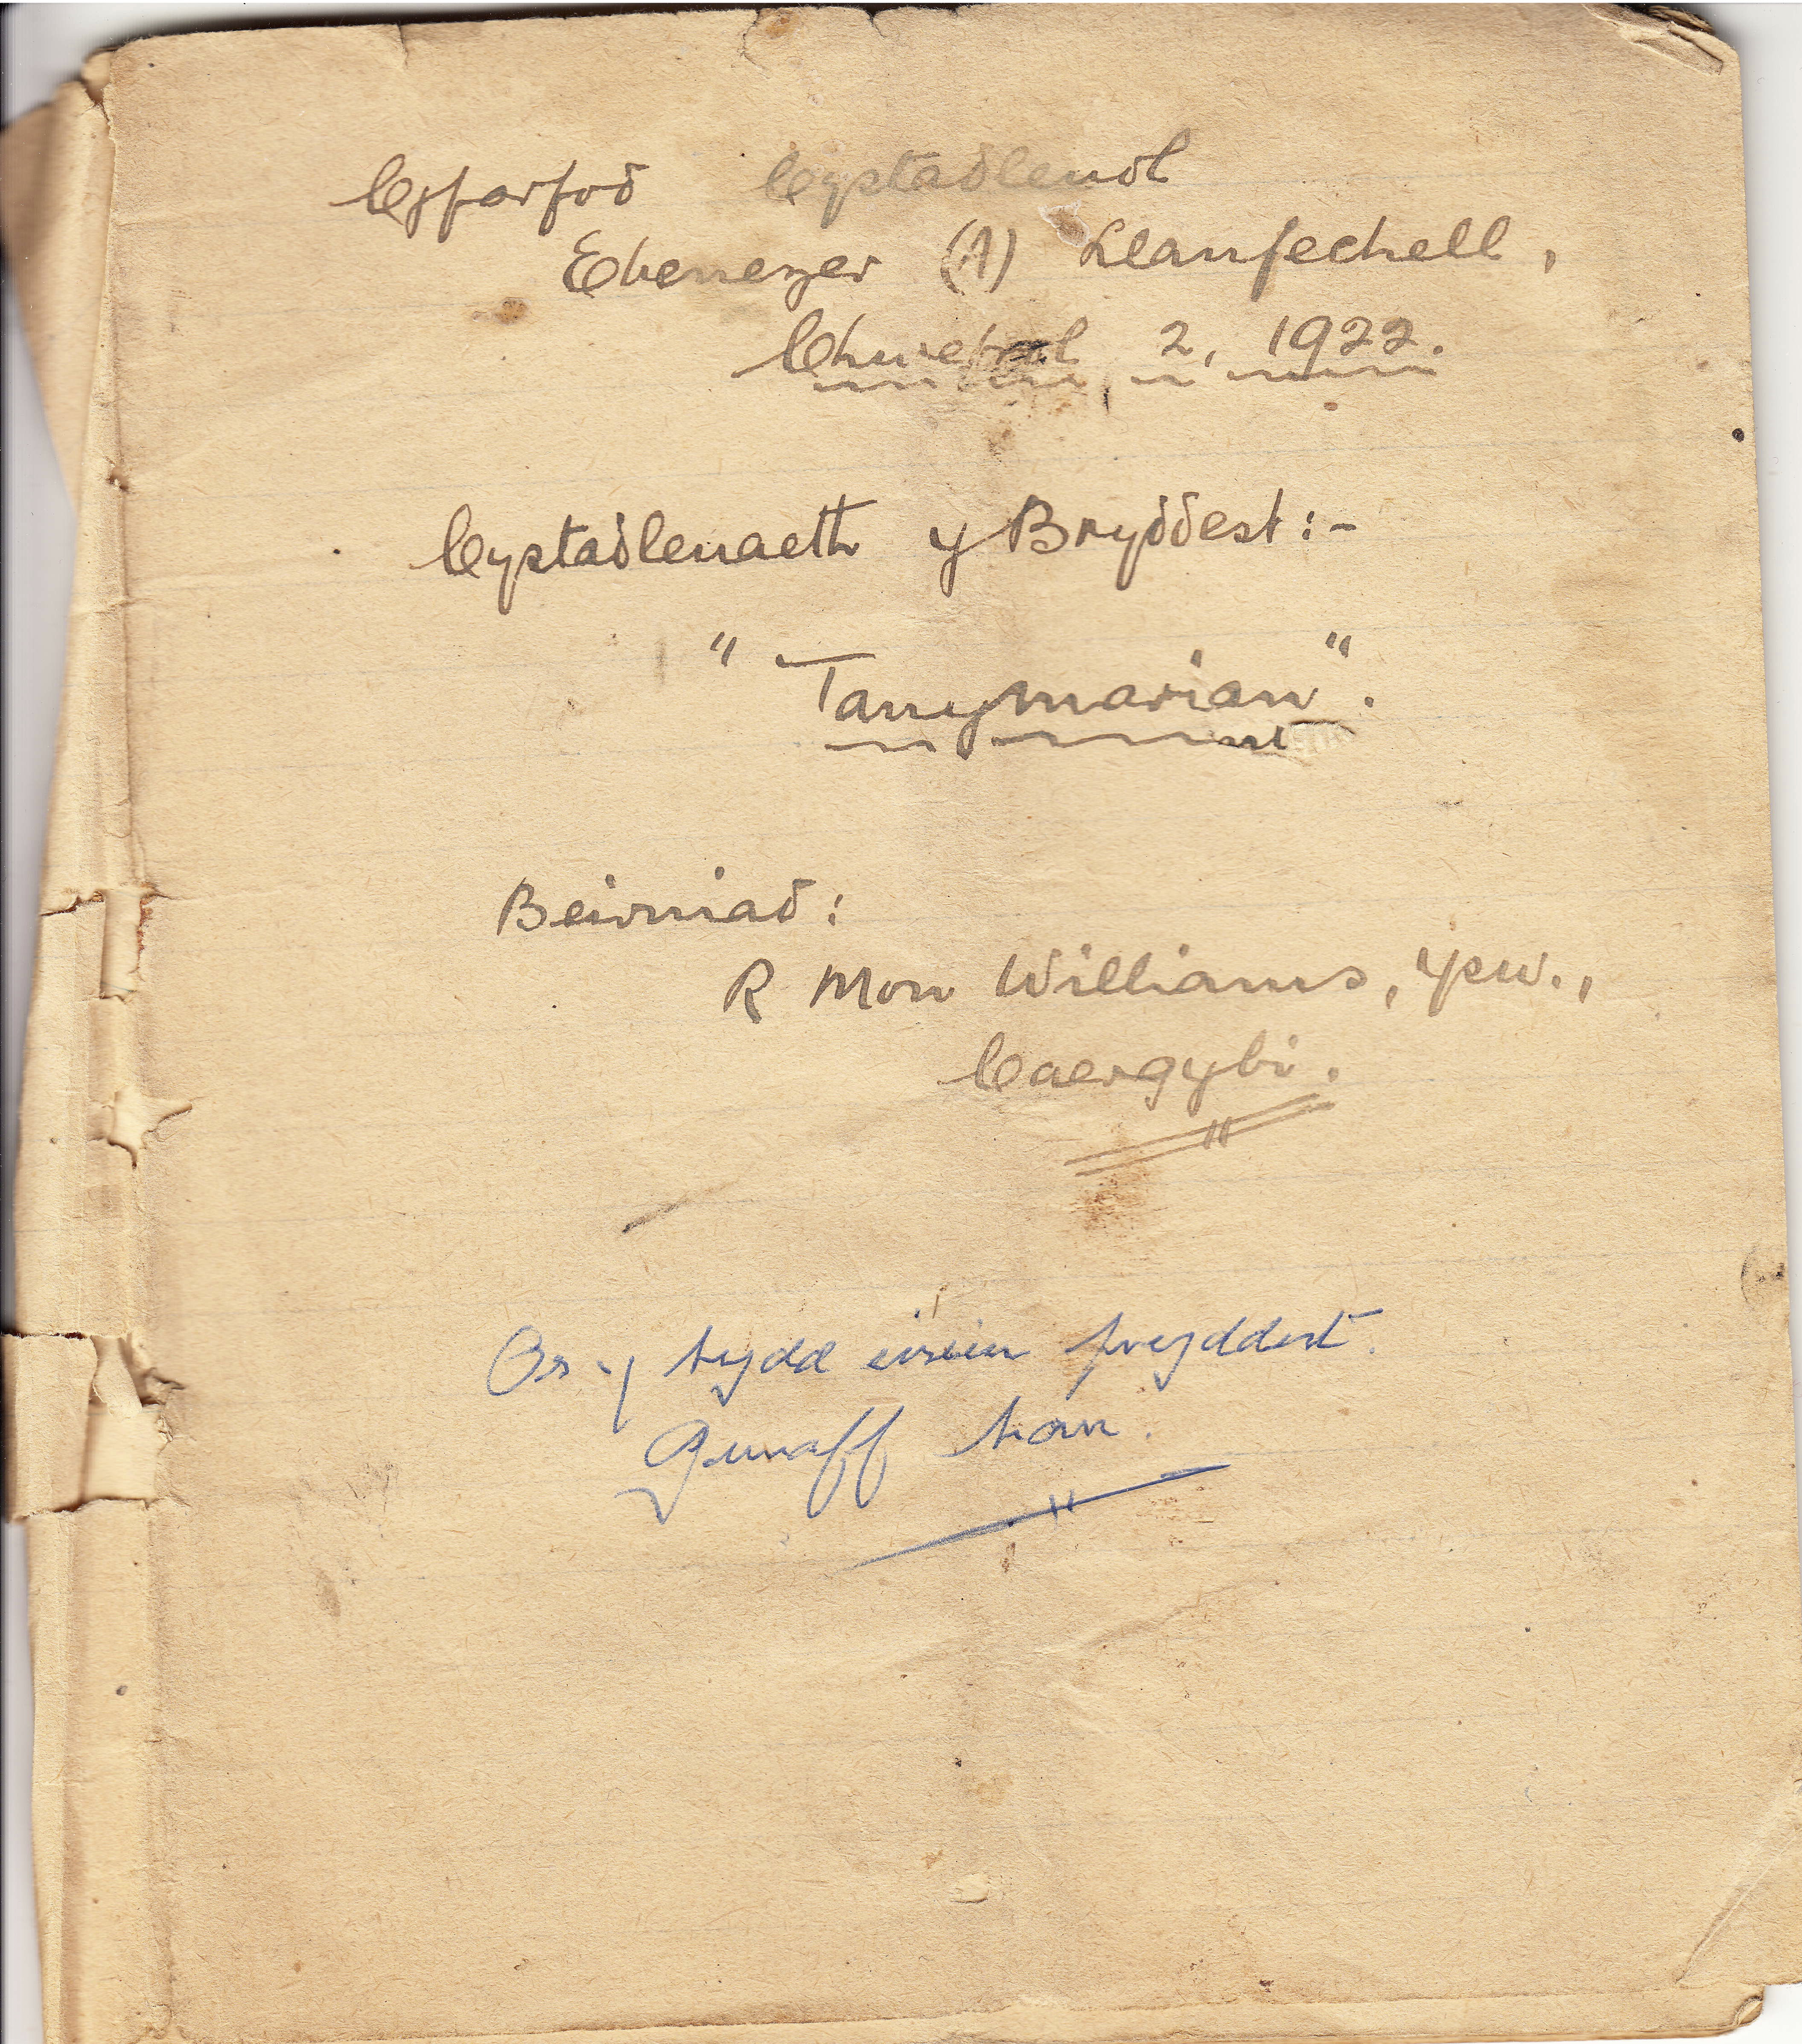 Cyfarfoδ Cystaδleuol
Ebenezer (A) Llanfechell,
Chwefrol 2, 1922.
Cystaδleuaeth y Bryδδest:-
"Tanymarian".
Beirniaδ:
R Mon Williams, Ysw.,
Caergybi.
Os y bydd eisieu pryddest.
Gwnaff hon.